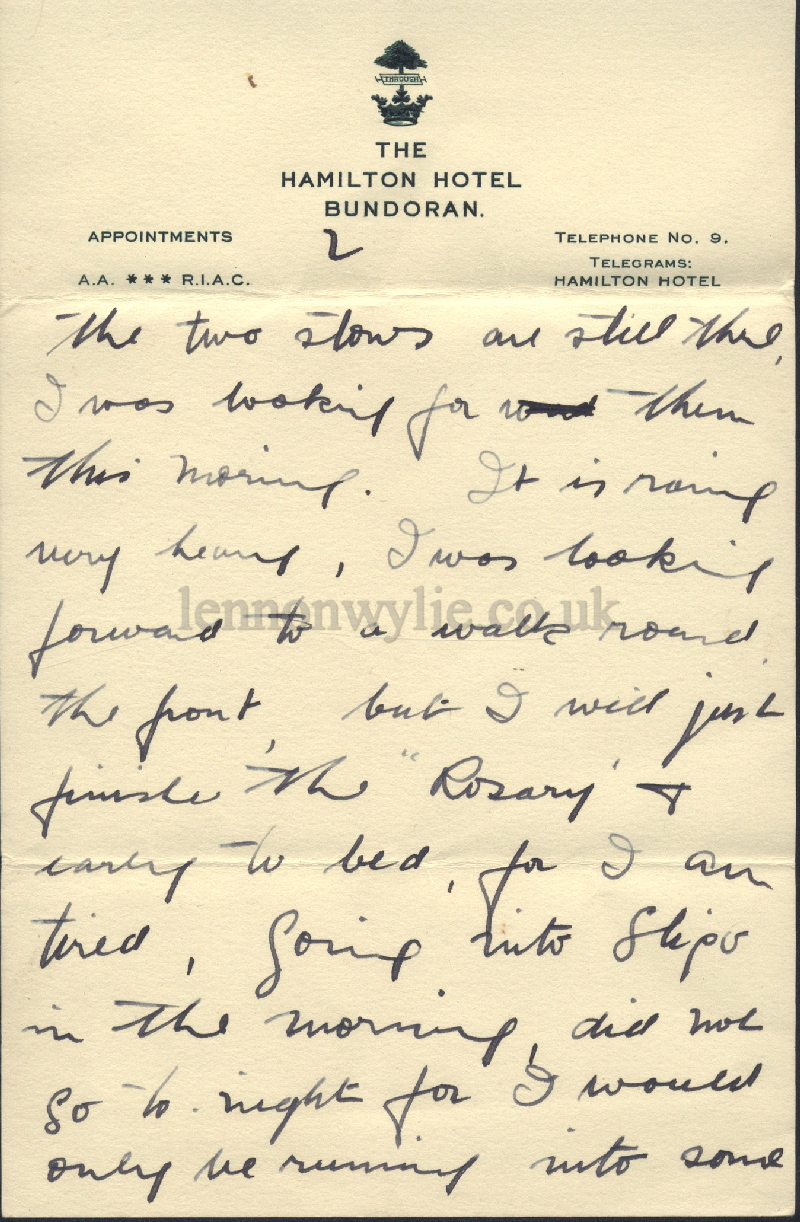 THROUGH
THE
HAMILTON HOTEL
BUNDORAN.
APPOINTMENTS
A.A. *** R.I.A.C.
2
TELEPHONE No. 9.
TELEGRAMS:
HAMILTON HOTEL
the two stows are still there,
I was looking for them
this morning. It is raing
very heavy, I was looking
forward to a walk round
the front, but I will just
finishe the "Rosary" +
early to bed, for I am
tired, Going into Sligo
in the morning, did not
go to-night for I would
only be running into some
lennonwylie.co.uk